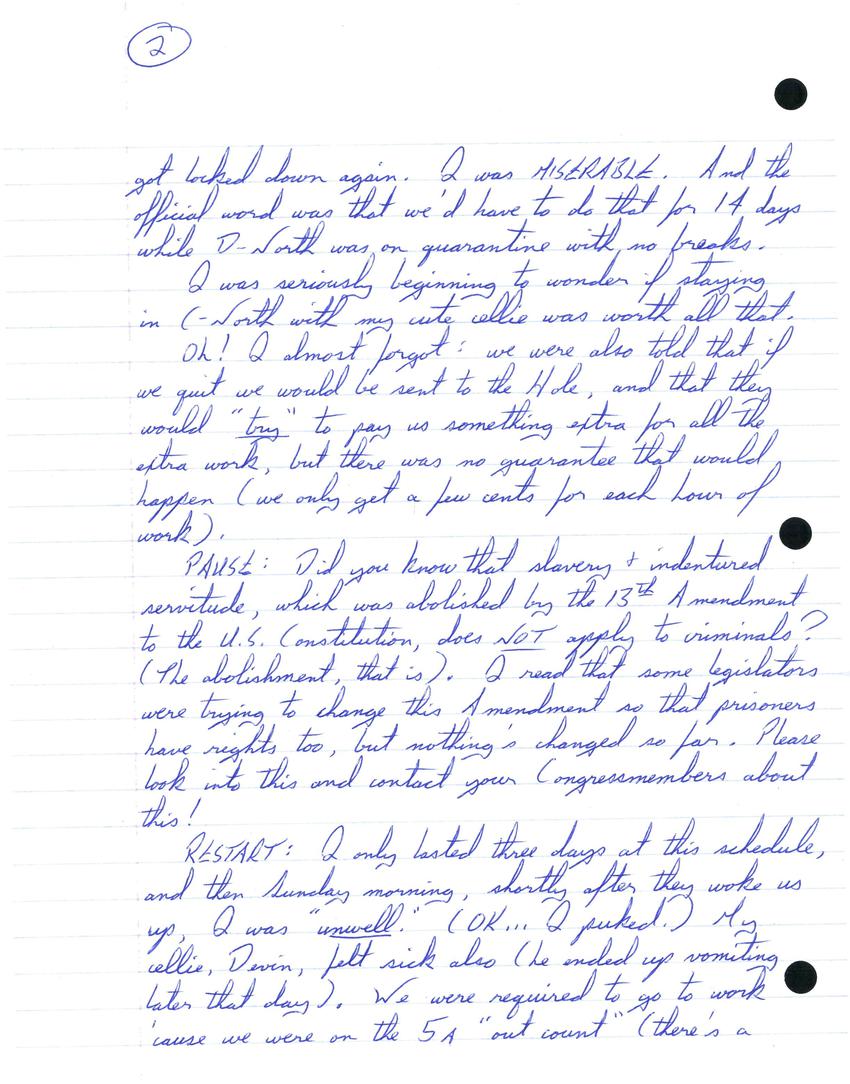 2
got locked down again. I was MISERABLE. And the
official word was that we'd have to do that for 14 days
while D-North was on quarantine with no breaks.
I was seriously beginning to wonder if staying
in C-North with my cute cellie was worth all that.
Oh! I almost forgot: we were also told that if
we quit we would be sent to the Hole, and that they
would "try" to pay us something extra for all the
extra work, but there was no guarantee that would
happen (we only get a few cents for each hour of
work).
PAUSE: Did you know that slavery + indentured
servitude, which was abolished by the 13th Amendment
to the U.S. Constitution, does NOT apply to criminals?
(The abolishment, that is). I read that some legislators
were trying to change this Amendment so that prisoners
have rights too, but nothing's changed so far. Please
look into this and contact your Congressmembers about
this!
RESTART: I only lasted three days at this schedule,
and then Sunday morning, shortly after they woke us
up, I was "unwell." (OK... I puked.) My
cellie, Devin, felt sick also (he ended up vomiting
later that day). We were required to go to work
'cause we were on the 5A "out count" (there's a